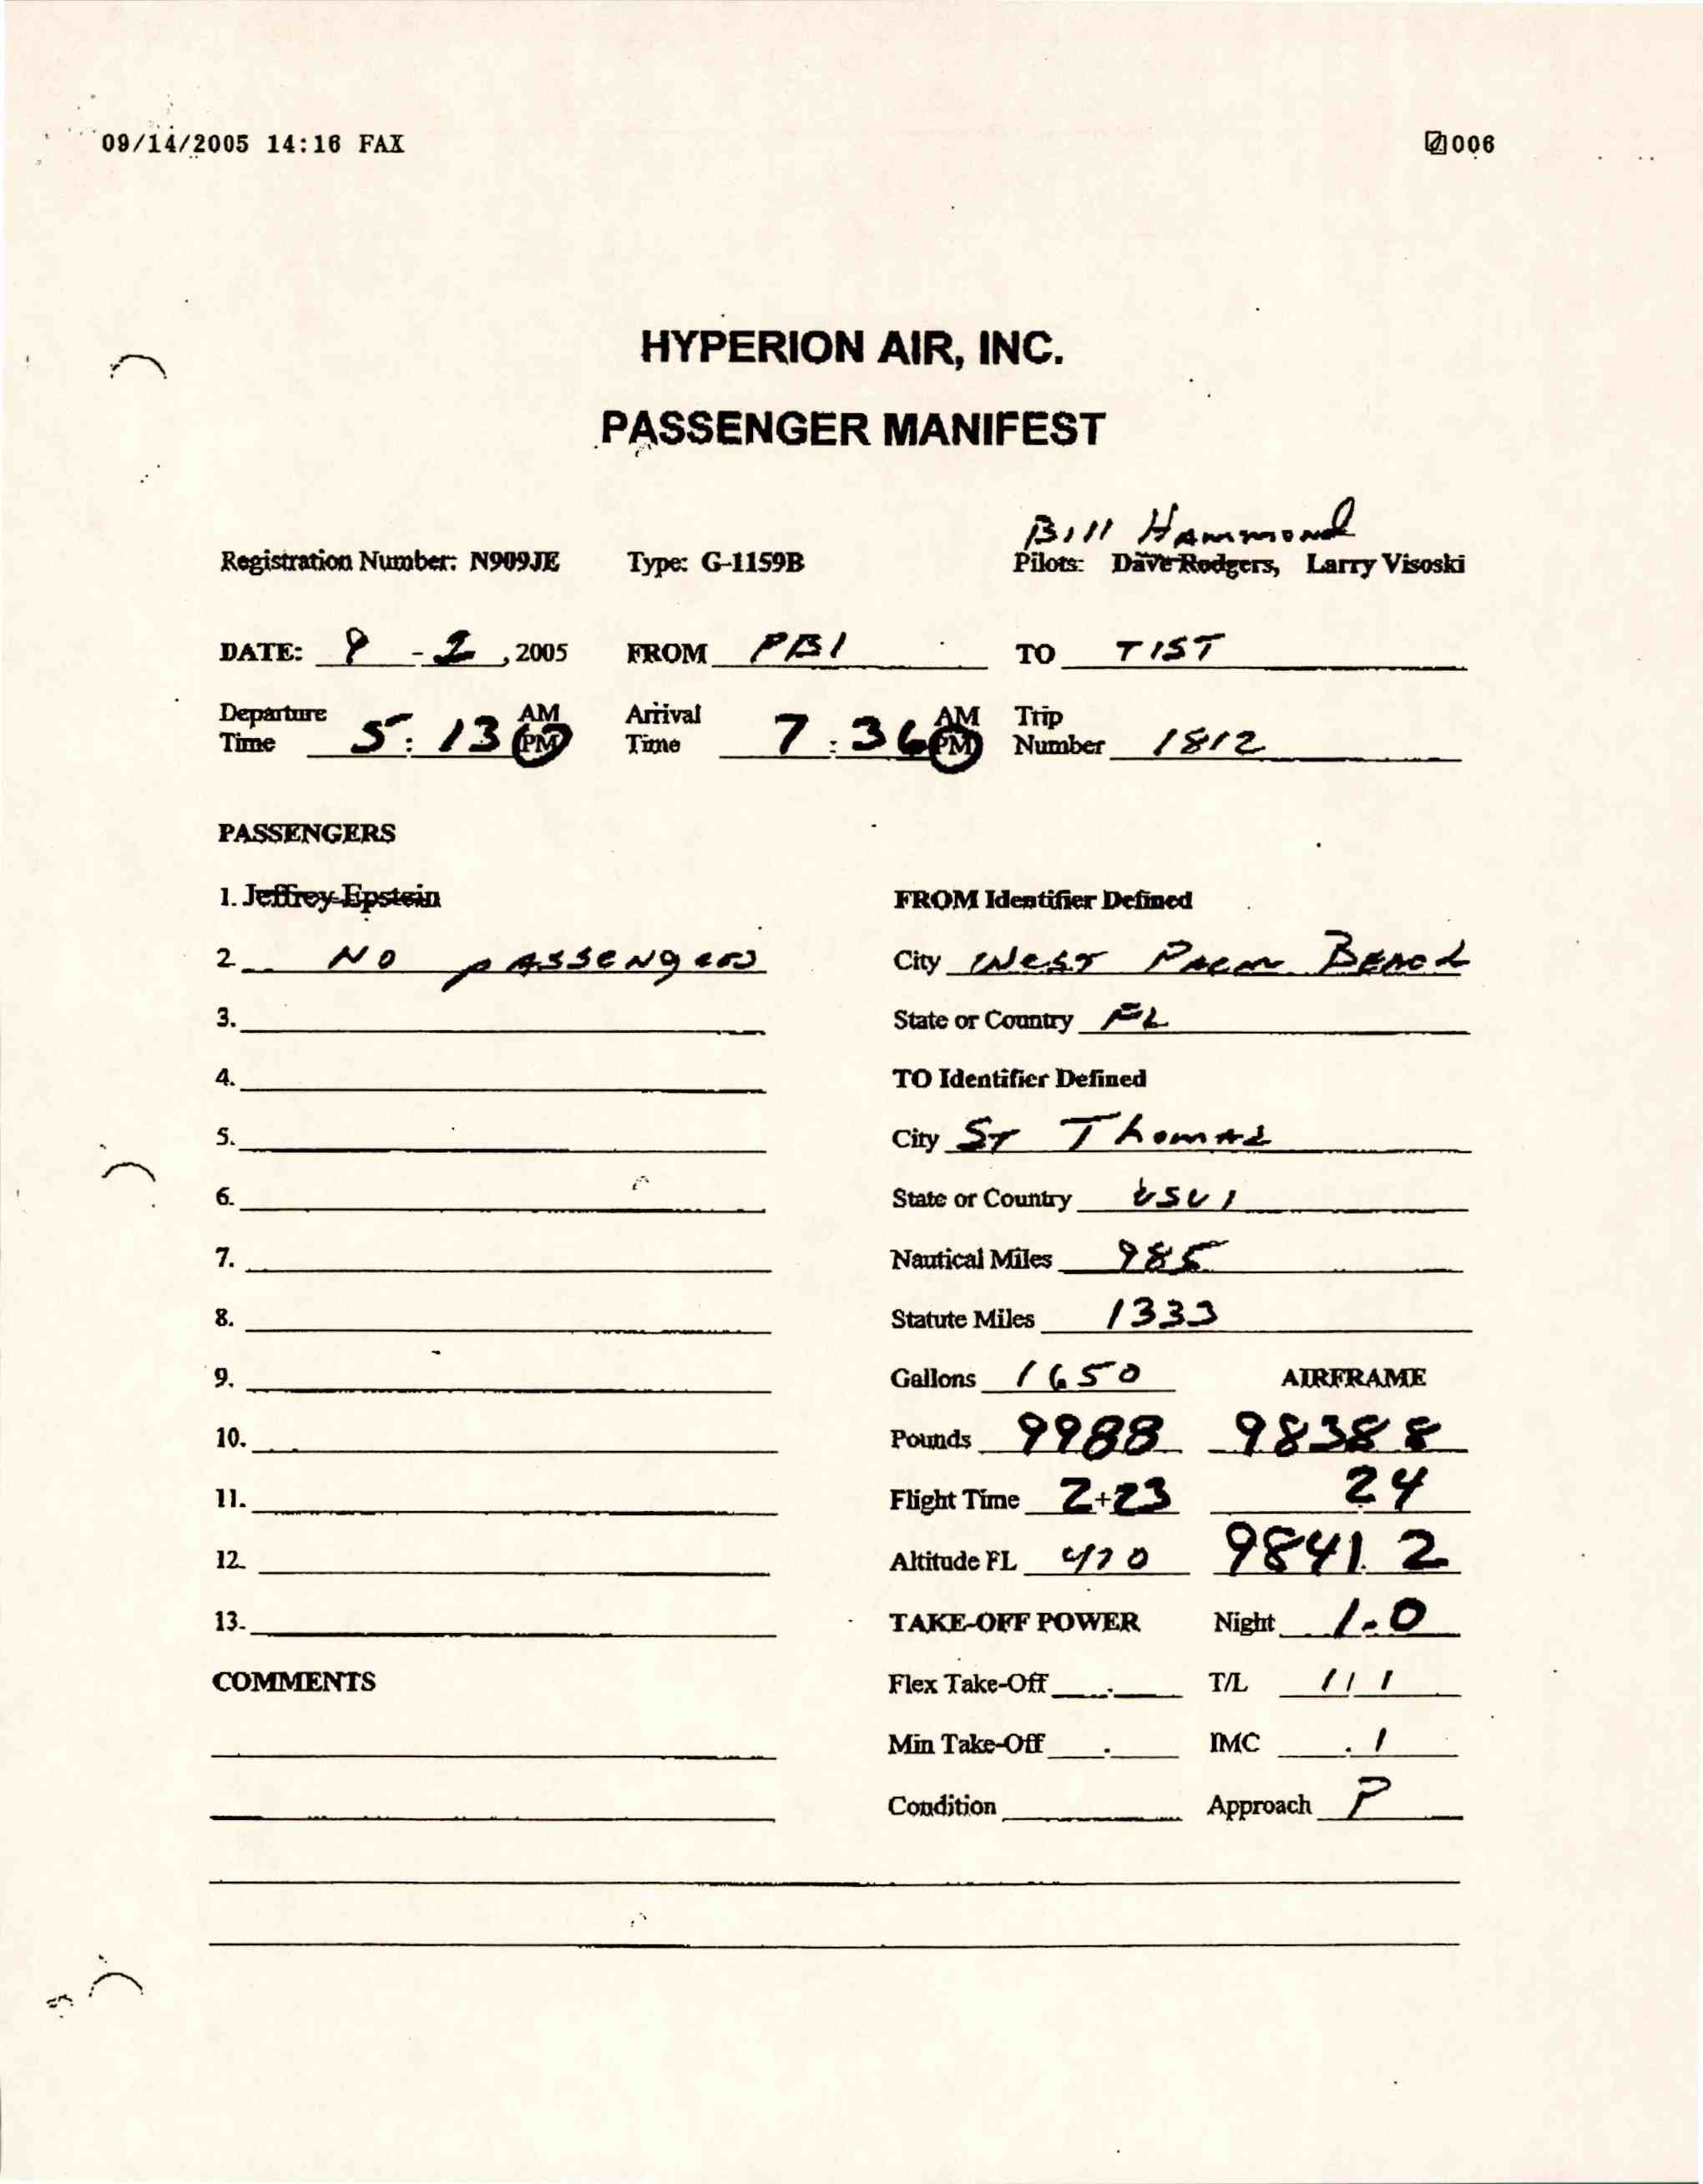 09/14/2005 14:16 FAX 006
HYPERION AIR, INC.
PASSENGER MANIFEST
Bill Hammond
Registration Number: N909JE Type: G-1159B Pilots: Dave Rodgers, Larry Visoski
DATE: 9 - 2, 2005 FROM PBI TO TIST
Departure Time 5:13 AM PM Arrival Time 7:36 AM PM Trip Number 1812
PASSENGERS
1. Jeffrey Epstein FROM Identifier Defined
2. NO PASSENgers City West Palm Beach
3. State or Country FL
4. TO Identifier Defined
5. City ST Thomas
6. State or Country USVI
7. Nautical Miles 985
8. Statute Miles 1333
9. Gallons 1650 AIRFRAME
10. Pounds 9988 9838 8
11. Flight Time 2+23 24
12. Altitude FL 470 9841.2
13. TAKE-OFF POWER Night 1.0
COMMENTS Flex Take-Off T/L 1/1
Min Take-Off IMC .1
Condition Approach P